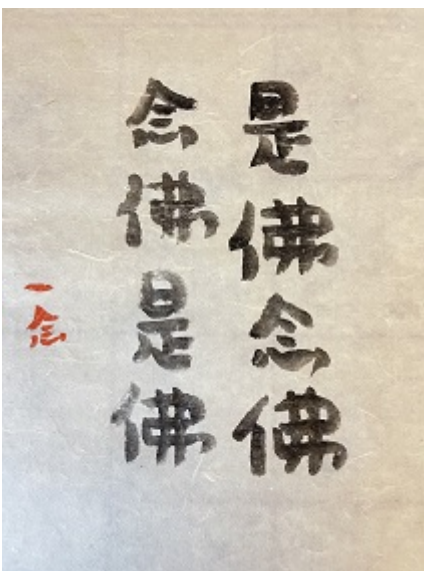 是佛念佛
念佛是佛
一念